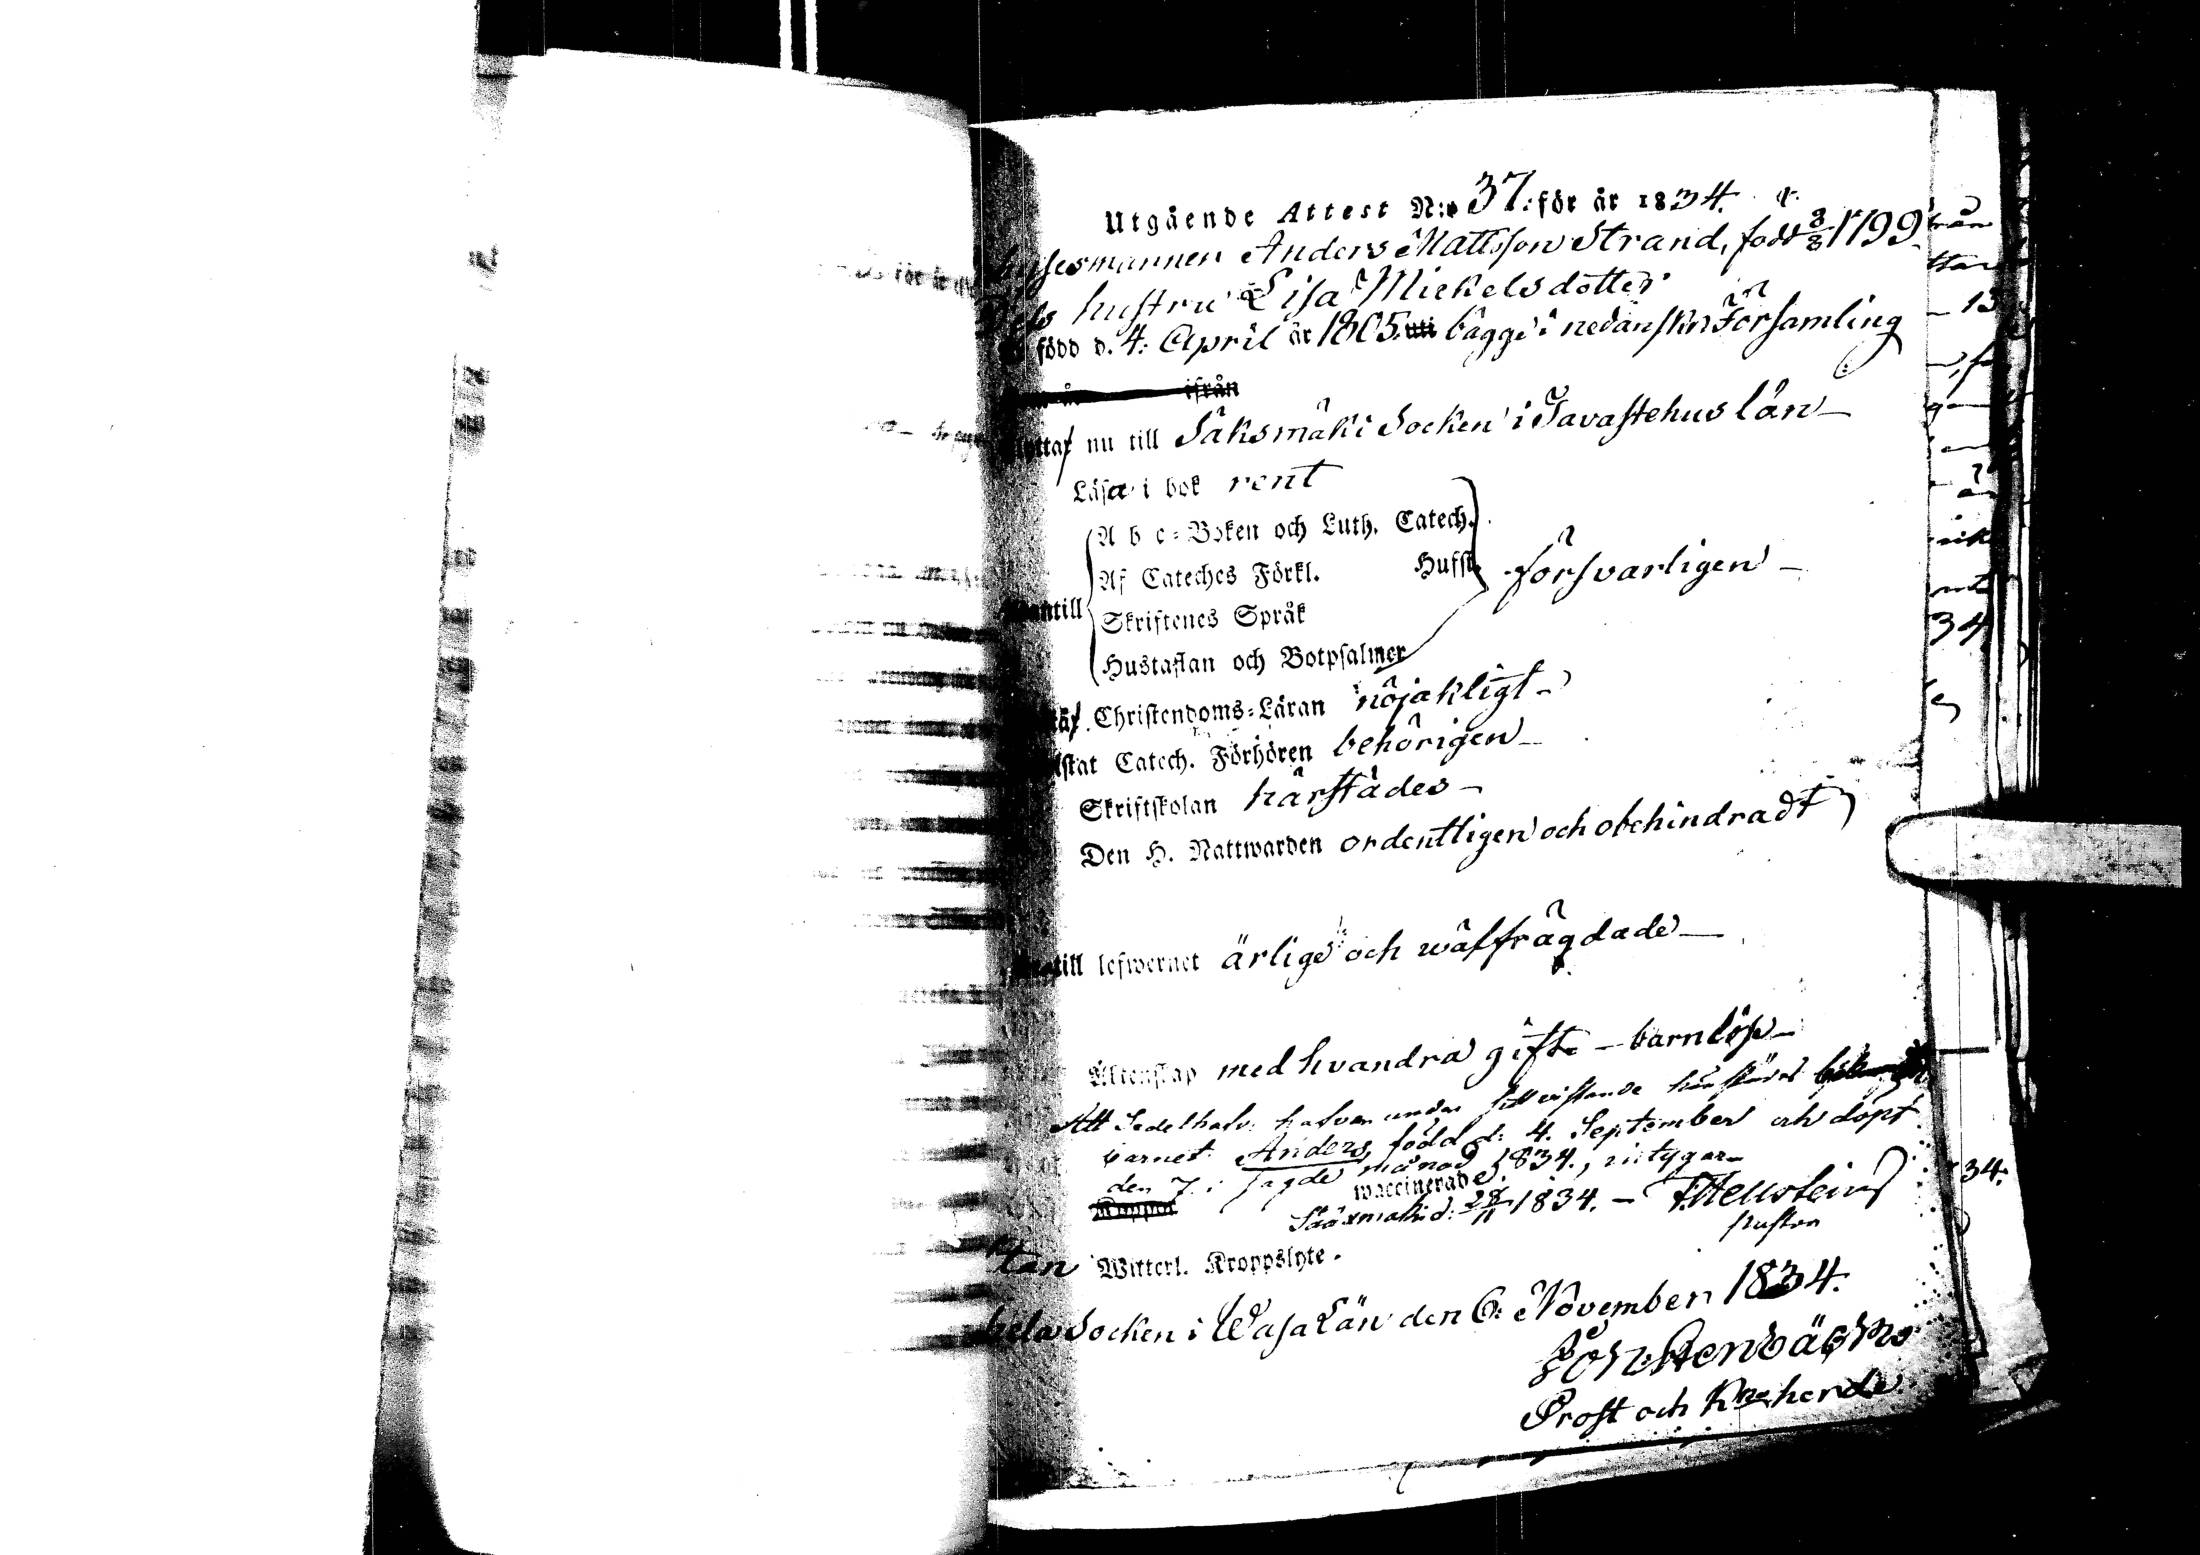 Utgående Attest N:o 37. för år 1834.
Anders Mattsson Strand, född 3/8 1799
hustru Lisa Mickelsdotter
född d. 4. April år 1805. uti bägge i nedanskn Församling
ifrån
nu till Säksmäki Socken i Tavastehus län
Läsa i bok rent
A b c-Boken och Luth. Catech.
Af Cateches Förkl. Hufst.
försvarligen
Skriftenes Språk
Hustaflan och Botpsalmer
Christendoms-Läran nöjakligt
Catech. Förhören behörigen
Skriftskolan härstädes
Den H. Nattwarden ordentligen och obehindradt
till lefwernet ärlige och wälfrägdade
Äktenskap med hvandra gifte - barnlöse
Att Sedelhafv. hafva under härstädes
barnet Anders, född d: 4. September och döpt
den 7. i sagde månad 1834., intygar
waccinerade
Koppor
Sääxmäki d: 28/11 1834. -
utan Witterl. Kroppslyte.
Socken i Wasa Län den 6. November 1834.
Prost och Kyrkoherde